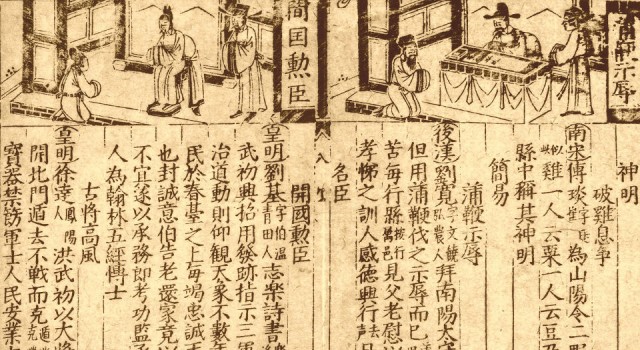 蒲鞭示辱
開囯勲臣
神明
破雞息爭
南宋傅琰字季珪為山陽令二野
雞一人云粟一人云豆
縣中稱其神明
簡易
蒲鞭示辱
後漢劉寬字文饒弘農人拜南陽太守
但用蒲鞭伐之示辱而已
苦每行縣按行屬邑見父老慰以
孝悌之訓人感德興行
名臣
八
開國勲臣
皇明劉基字伯溫青田人志樂詩書
武初興招用發跡指示三軍
治道動則仰觀天象不數年
民於春臺之上每竭忠誠王
也封誠意伯告老還家竟以
不宜遂以承務即考功監丞
人為翰林五經博士
古將高風
皇明徐達鳳陽人洪武初以大將
開北門遁去不戰而克
寶器禁防軍士人民安業